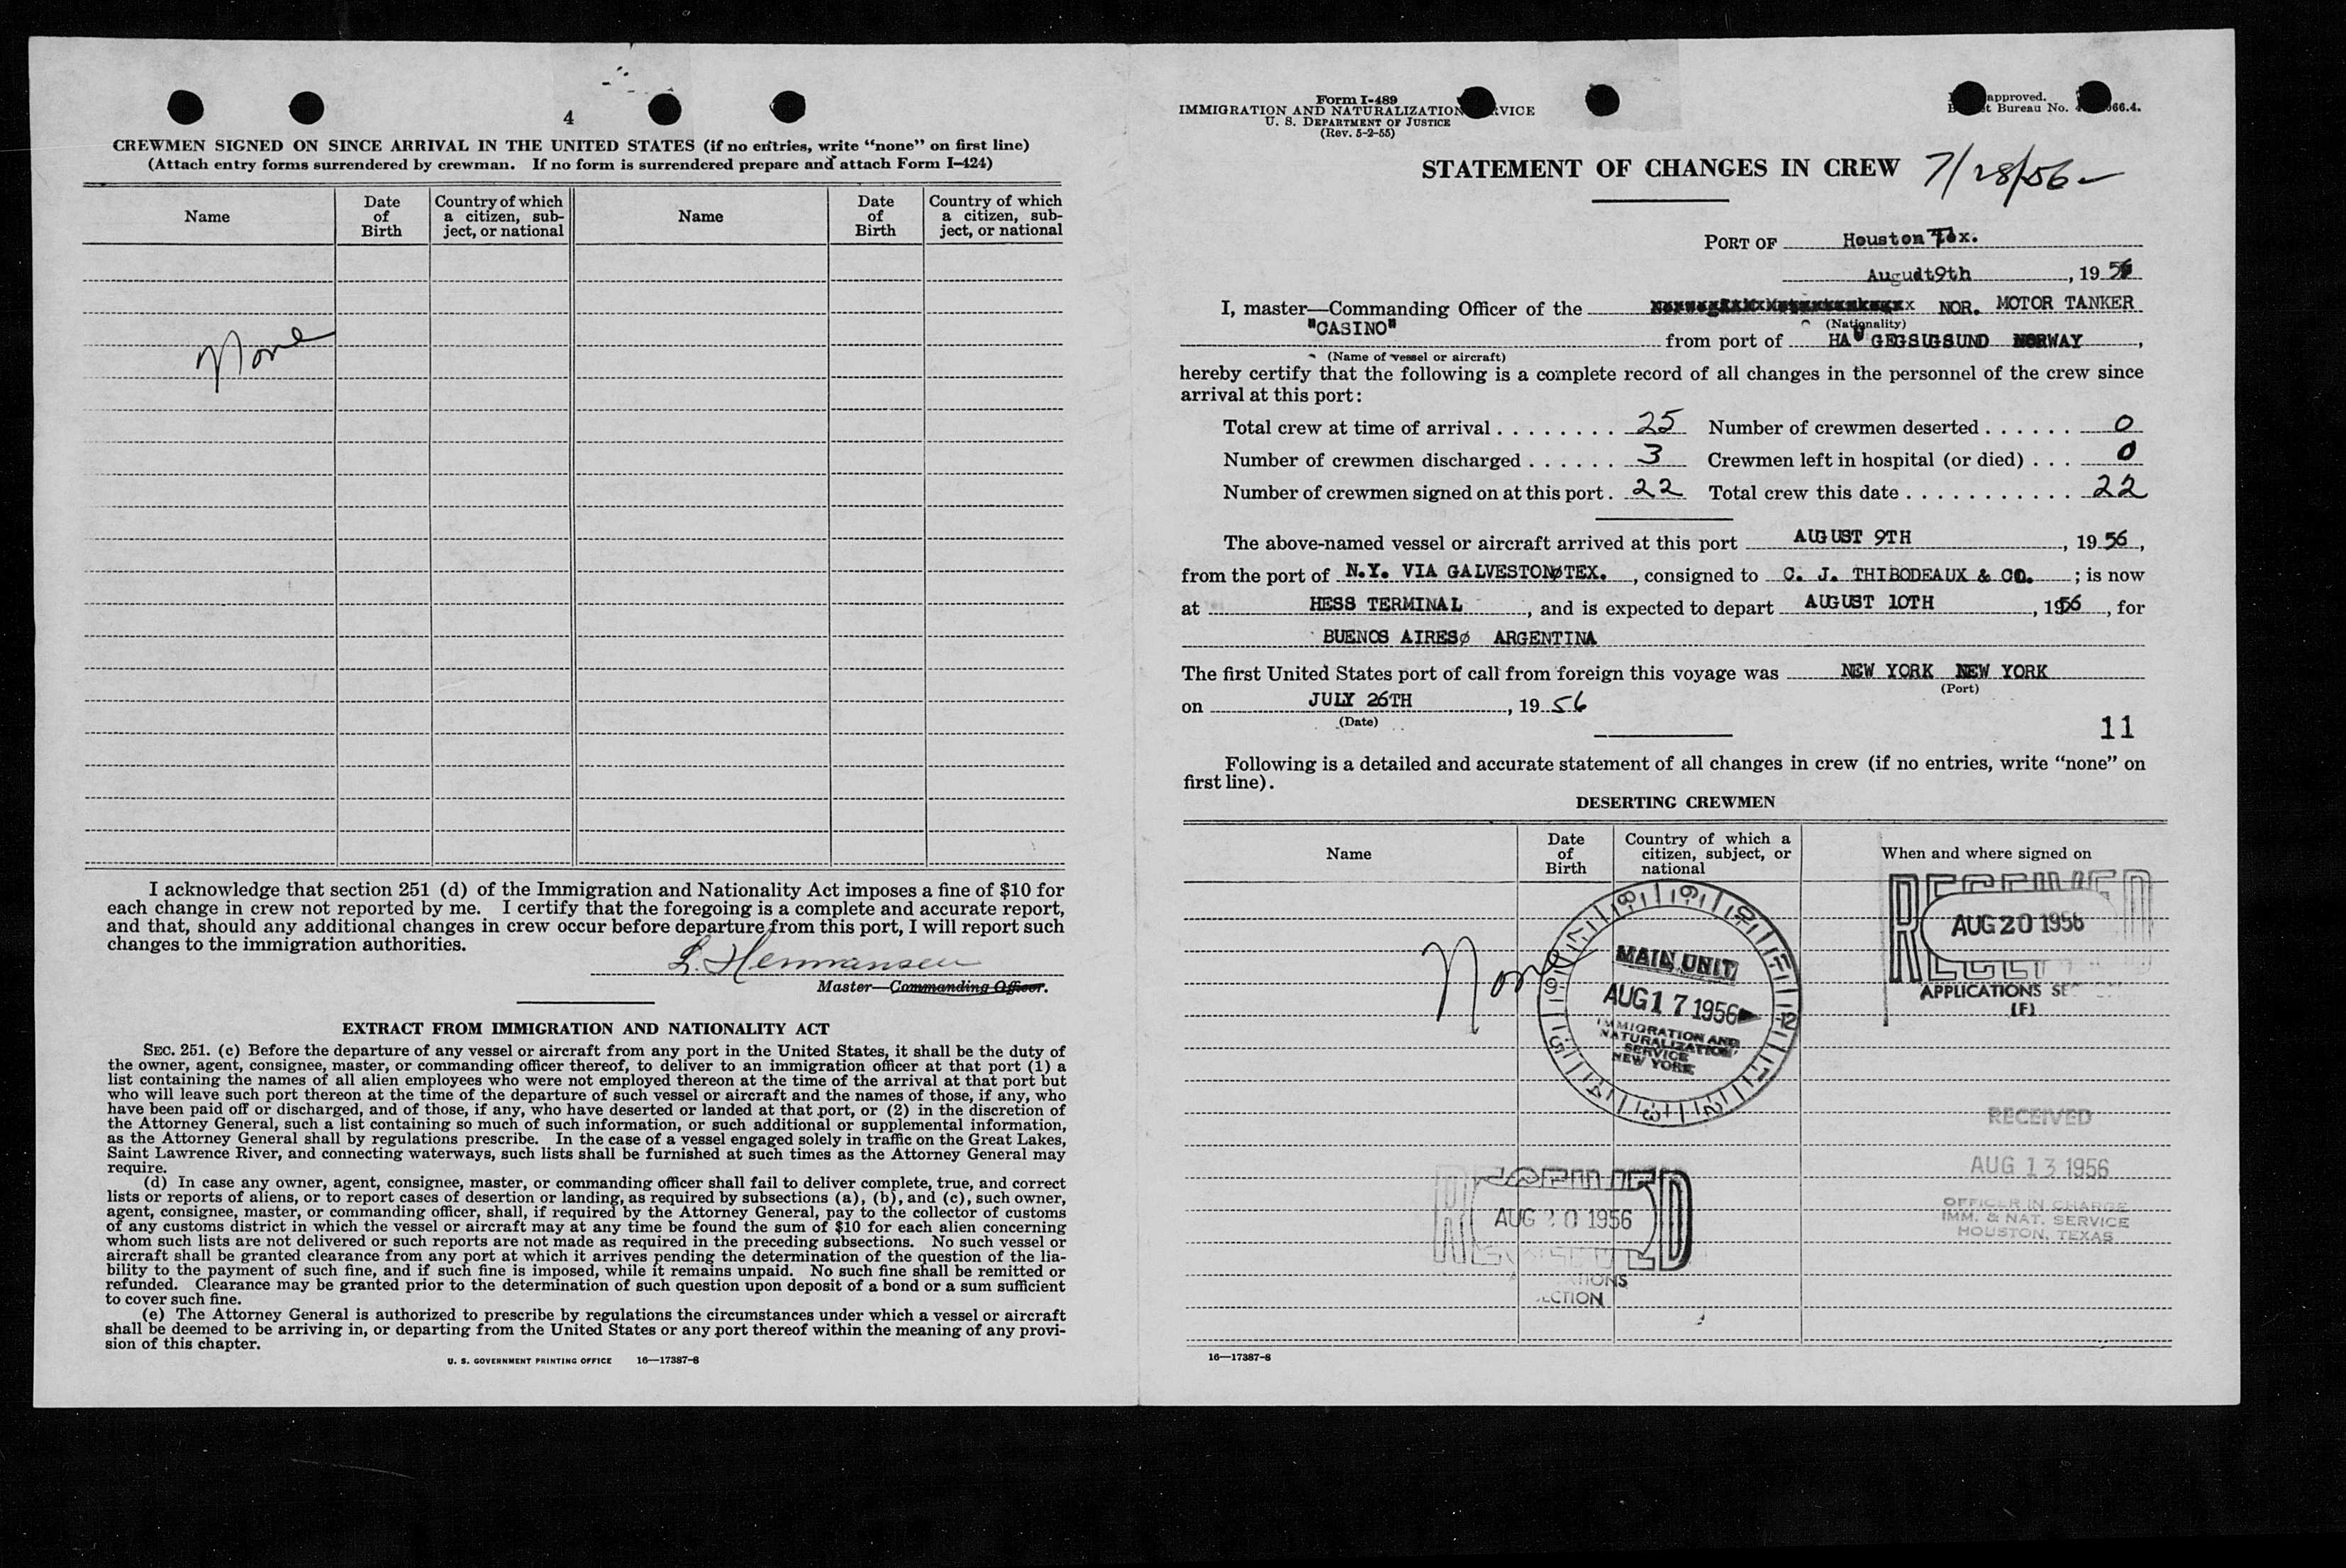 4
CREWMEN SIGNED ON SINCE ARRIVAL IN THE UNITED STATES (if no entries, write “none” on first line)
(Attach entry forms surrendered by crewman. If no form is surrendered prepare and attach Form I-424)
Name
Date of Birth
Country of which a citizen, sub-ject, or national
Name
Date of Birth
Country of which a citizen, sub-ject, or national
None
I acknowledge that section 251 (d) of the Immigration and Nationality Act imposes a fine of $10 for
each change in crew not reported by me. I certify that the foregoing is a complete and accurate report,
and that, should any additional changes in crew occur before departure from this port, I will report such
changes to the immigration authorities.
L. Hermansen
Master—Commanding Officer.
EXTRACT FROM IMMIGRATION AND NATIONALITY ACT
SEC. 251. (c) Before the departure of any vessel or aircraft from any port in the United States, it shall be the duty of
the owner, agent, consignee, master, or commanding officer thereof, to deliver to an immigration officer at that port (1) a
list containing the names of all alien employees who were not employed thereon at the time of the arrival at that port but
who will leave such port thereon at the time of the departure of such vessel or aircraft and the names of those, if any, who
have been paid off or discharged, and of those, if any, who have deserted or landed at that port, or (2) in the discretion of
the Attorney General, such a list containing so much of such information, or such additional or supplemental information,
as the Attorney General shall by regulations prescribe. In the case of a vessel engaged solely in traffic on the Great Lakes,
Saint Lawrence River, and connecting waterways, such lists shall be furnished at such times as the Attorney General may
require.
(d) In case any owner, agent, consignee, master, or commanding officer shall fail to deliver complete, true, and correct
lists or reports of aliens, or to report cases of desertion or landing, as required by subsections (a), (b), and (c), such owner,
agent, consignee, master, or commanding officer, shall, if required by the Attorney General, pay to the collector of customs
of any customs district in which the vessel or aircraft may at any time be found the sum of $10 for each alien concerning
whom such lists are not delivered or such reports are not made as required in the preceding subsections. No such vessel or
aircraft shall be granted clearance from any port at which it arrives pending the determination of the question of the lia-
bility to the payment of such fine, and if such fine is imposed, while it remains unpaid. No such fine shall be remitted or
refunded. Clearance may be granted prior to the determination of such question upon deposit of a bond or a sum sufficient
to cover such fine.
(e) The Attorney General is authorized to prescribe by regulations the circumstances under which a vessel or aircraft
shall be deemed to be arriving in, or departing from the United States or any port thereof within the meaning of any provi-
sion of this chapter.
U. S. GOVERNMENT PRINTING OFFICE 16—17387-8
Form I-489
IMMIGRATION AND NATURALIZATION RVICE
U. S. DEPARTMENT OF JUSTICE
(Rev. 5-2-55)
approved.
t Bureau No. 066.4.
STATEMENT OF CHANGES IN CREW 7/28/56
PORT OF Houston Tex.
Augudt9th, 19 56
I, master—Commanding Officer of the NOR. MOTOR TANKER
(Nationality)
"CASINO" from port of HAUGEGSUGSUND NORWAY,
(Name of vessel or aircraft)
hereby certify that the following is a complete record of all changes in the personnel of the crew since
arrival at this port:
Total crew at time of arrival ........ 25 Number of crewmen deserted ...... 0
Number of crewmen discharged ...... 3 Crewmen left in hospital (or died) ... 0
Number of crewmen signed on at this port. 22 Total crew this date ........... 22
The above-named vessel or aircraft arrived at this port AUGUST 9TH, 19 56,
from the port of N.Y. VIA GALVESTONØTEX., consigned to C. J. THIBODEAUX & CO. ; is now
at HESS TERMINAL, and is expected to depart AUGUST 10TH, 1956, for
BUENOS AIRESØ ARGENTINA
The first United States port of call from foreign this voyage was NEW YORK NEW YORK
(Port)
on JULY 26TH, 19 56
(Date)
11
Following is a detailed and accurate statement of all changes in crew (if no entries, write “none” on
first line).
DESERTING CREWMEN
Name
Date of Birth
Country of which a citizen, subject, or national
When and where signed on
None
MAIN UNIT
AUG 17 1956
IMMIGRATION AND
NATURALIZATION
SERVICE
NEW YORK
RECEIVED
AUG 20 1956
APPLICATIONS
(F)
RECEIVED
AUG 13 1956
OFFICER IN CHARGE
IMM. & NAT. SERVICE
HOUSTON, TEXAS
AUG 20 1956
16—17387-8